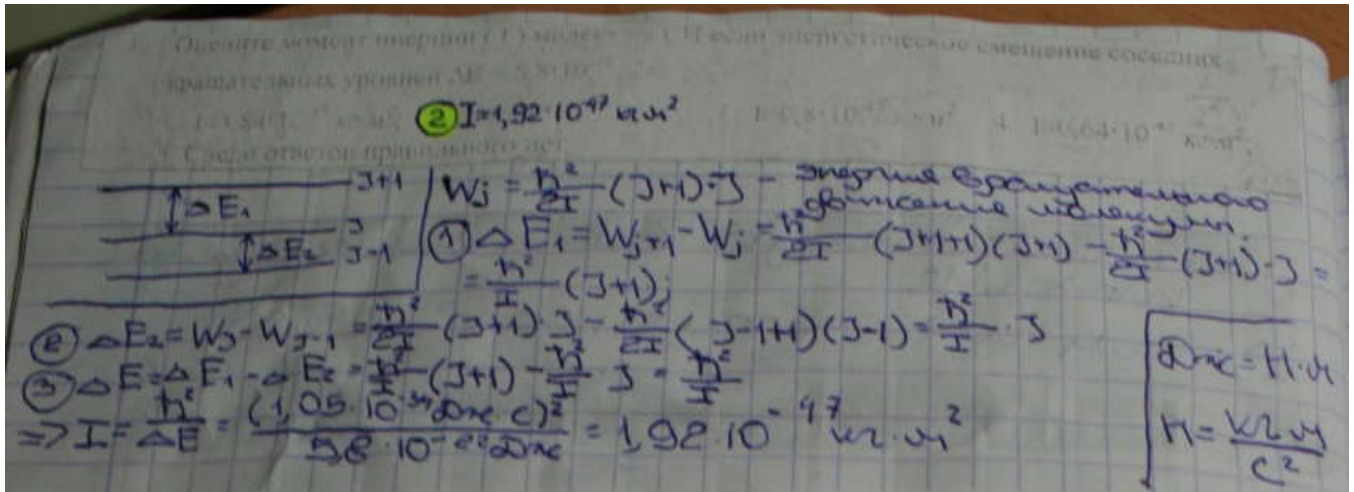 Оцените момент инерции (I) молекулы CH если энергетическое смещение соседних
вращательных уровней ΔE = 5,8·10
② I=1,92·10⁻⁴⁷ кг·м² I=0,8·10 кг·м² 4. I=0,64·10⁻⁴⁷ кг·м²;
Среди ответов правильного нет
J+1
ΔE₁
J
ΔE₂ J-1
Wj = ħ²/2I (J+1)·J - энергия вращательного
движения молекулы.
① ΔE₁ = Wj+1 - Wj = ħ²/2I (J+1+1)(J+1) - ħ²/2I (J+1)·J =
= ħ²/I (J+1);
② ΔE₂ = WJ - WJ-1 = ħ²/2I (J+1)·J - ħ²/2I (J-1+1)(J-1) = ħ²/I · J
③ ΔE = ΔE₁ - ΔE₂ = ħ²/I (J+1) - ħ²/I · J = ħ²/I
=> I = ħ²/ΔE = (1,05·10⁻³⁴ Дж·с)²/5,8·10⁻²² Дж = 1,92·10⁻⁴⁷ кг·м²
Дж = Н·м
Н = кг·м/с²